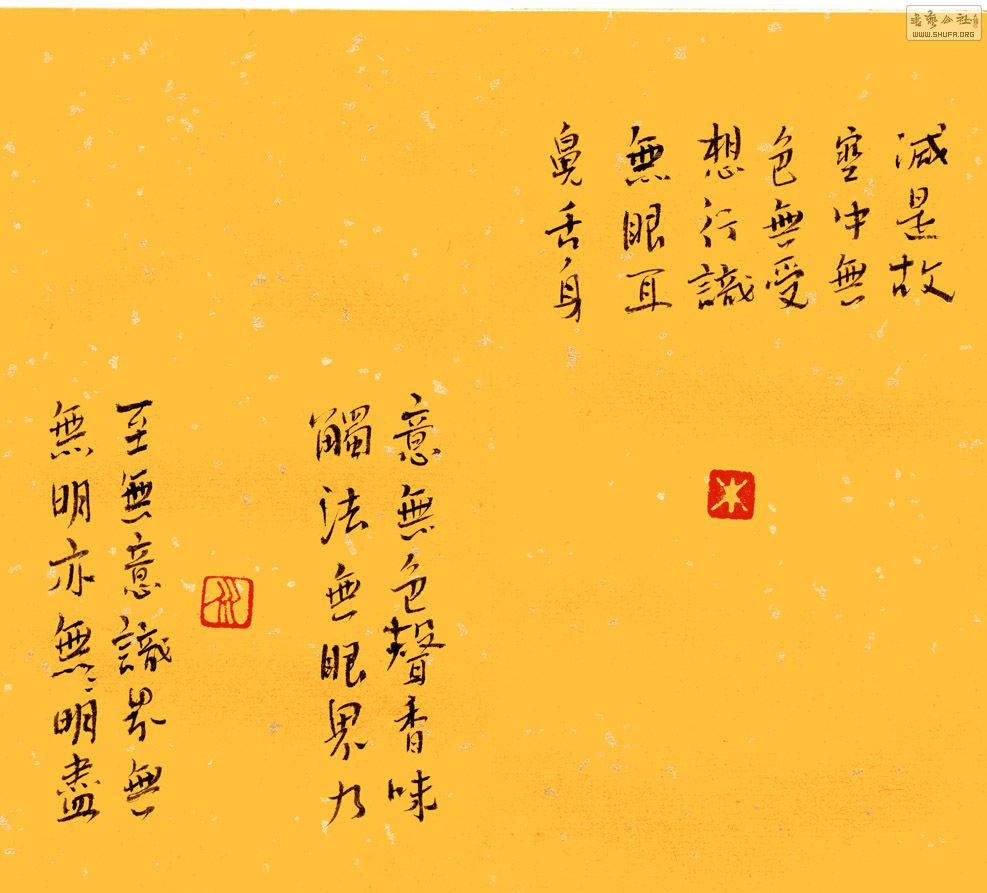 減是故
空中無
色無受
想行識
無眼耳
鼻舌身
意無色聲香味
觸法無眼界乃
至無意識界無
無明亦無無明盡
WWW.SHUFA.ORG